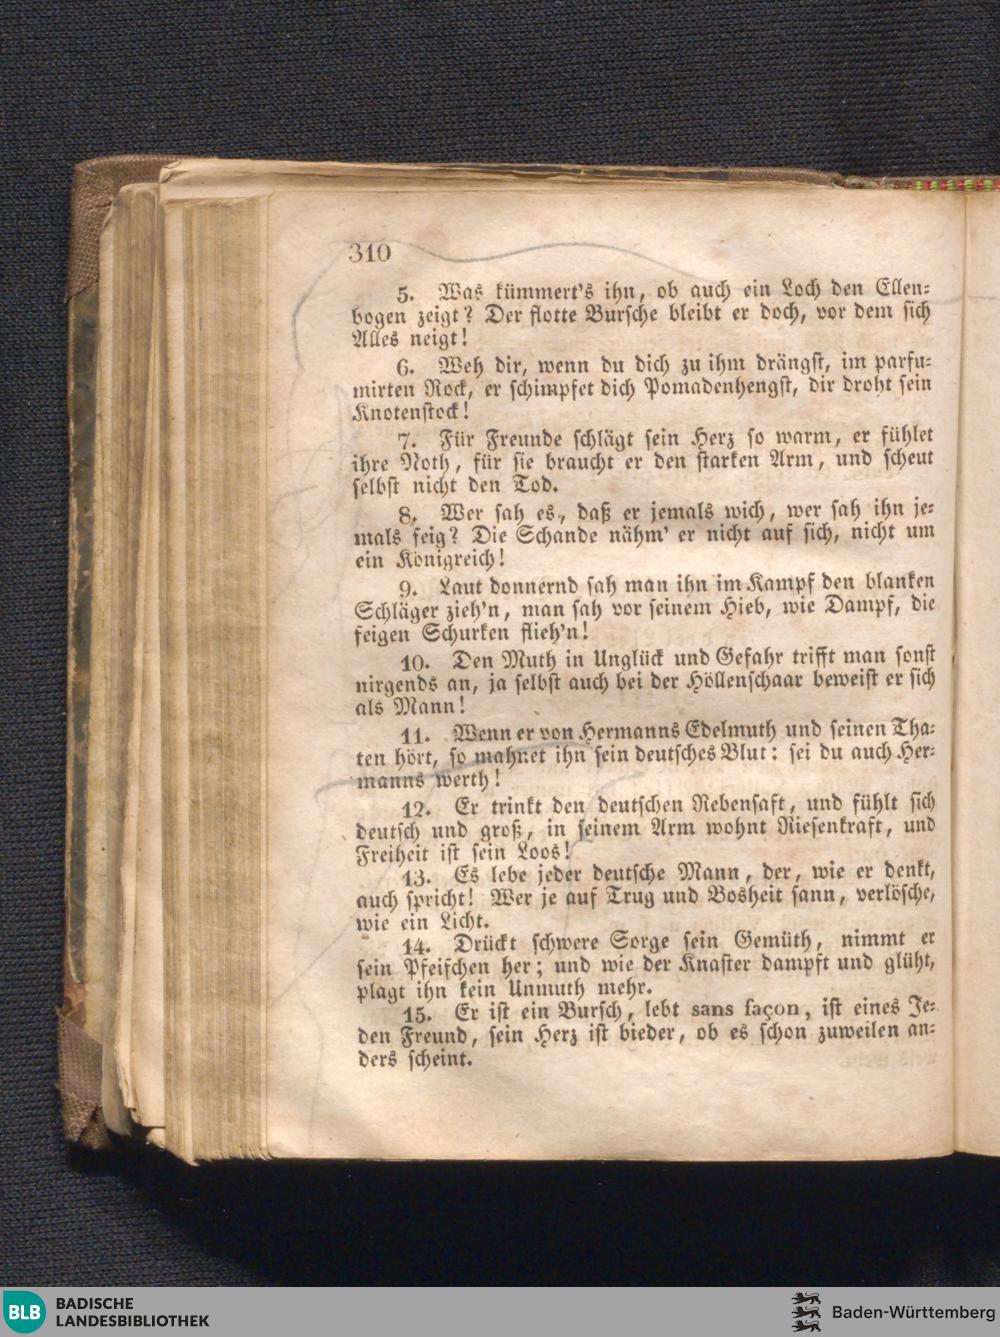 310
5. Was kümmert's ihn, ob auch ein Loch den Ellen-
bogen zeigt? Der flotte Bursche bleibt er doch, vor dem sich
Alles neigt!
6. Weh dir, wenn du dich zu ihm drängst, im parfu-
mirten Rock, er schimpfet dich Pomadenhengst, dir droht sein
Knotenstock!
7. Für Freunde schlägt sein Herz so warm, er fühlet
ihre Noth, für sie braucht er den starken Arm, und scheut
selbst nicht den Tod.
8. Wer sah es, daß er jemals wich, wer sah ihn je-
mals feig? Die Schande nähm' er nicht auf sich, nicht um
ein Königreich!
9. Laut donnernd sah man ihn im Kampf den blanken
Schläger zieh'n, man sah vor seinem Hieb, wie Dampf, die
feigen Schurken flieh'n!
10. Den Muth in Unglück und Gefahr trifft man sonst
nirgends an, ja selbst auch bei der Höllenschaar beweist er sich
als Mann!
11. Wenn er von Hermanns Edelmuth und seinen Tha-
ten hört, so mahnet ihn sein deutsches Blut: sei du auch Her-
manns werth!
12. Er trinkt den deutschen Rebensaft, und fühlt sich
deutsch und groß, in seinem Arm wohnt Riesenkraft, und
Freiheit ist sein Loos!
13. Es lebe jeder deutsche Mann, der, wie er denkt,
auch spricht! Wer je auf Trug und Bosheit sann, verlösche,
wie ein Licht.
14. Drückt schwere Sorge sein Gemüth, nimmt er
sein Pfeifchen her; und wie der Knaster dampft und glüht,
plagt ihn kein Unmuth mehr.
15. Er ist ein Bursch, lebt sans façon, ist eines Je-
den Freund, sein Herz ist bieder, ob es schon zuweilen an-
ders scheint.
BLB BADISCHE
LANDESBIBLIOTHEK
Baden-Württemberg